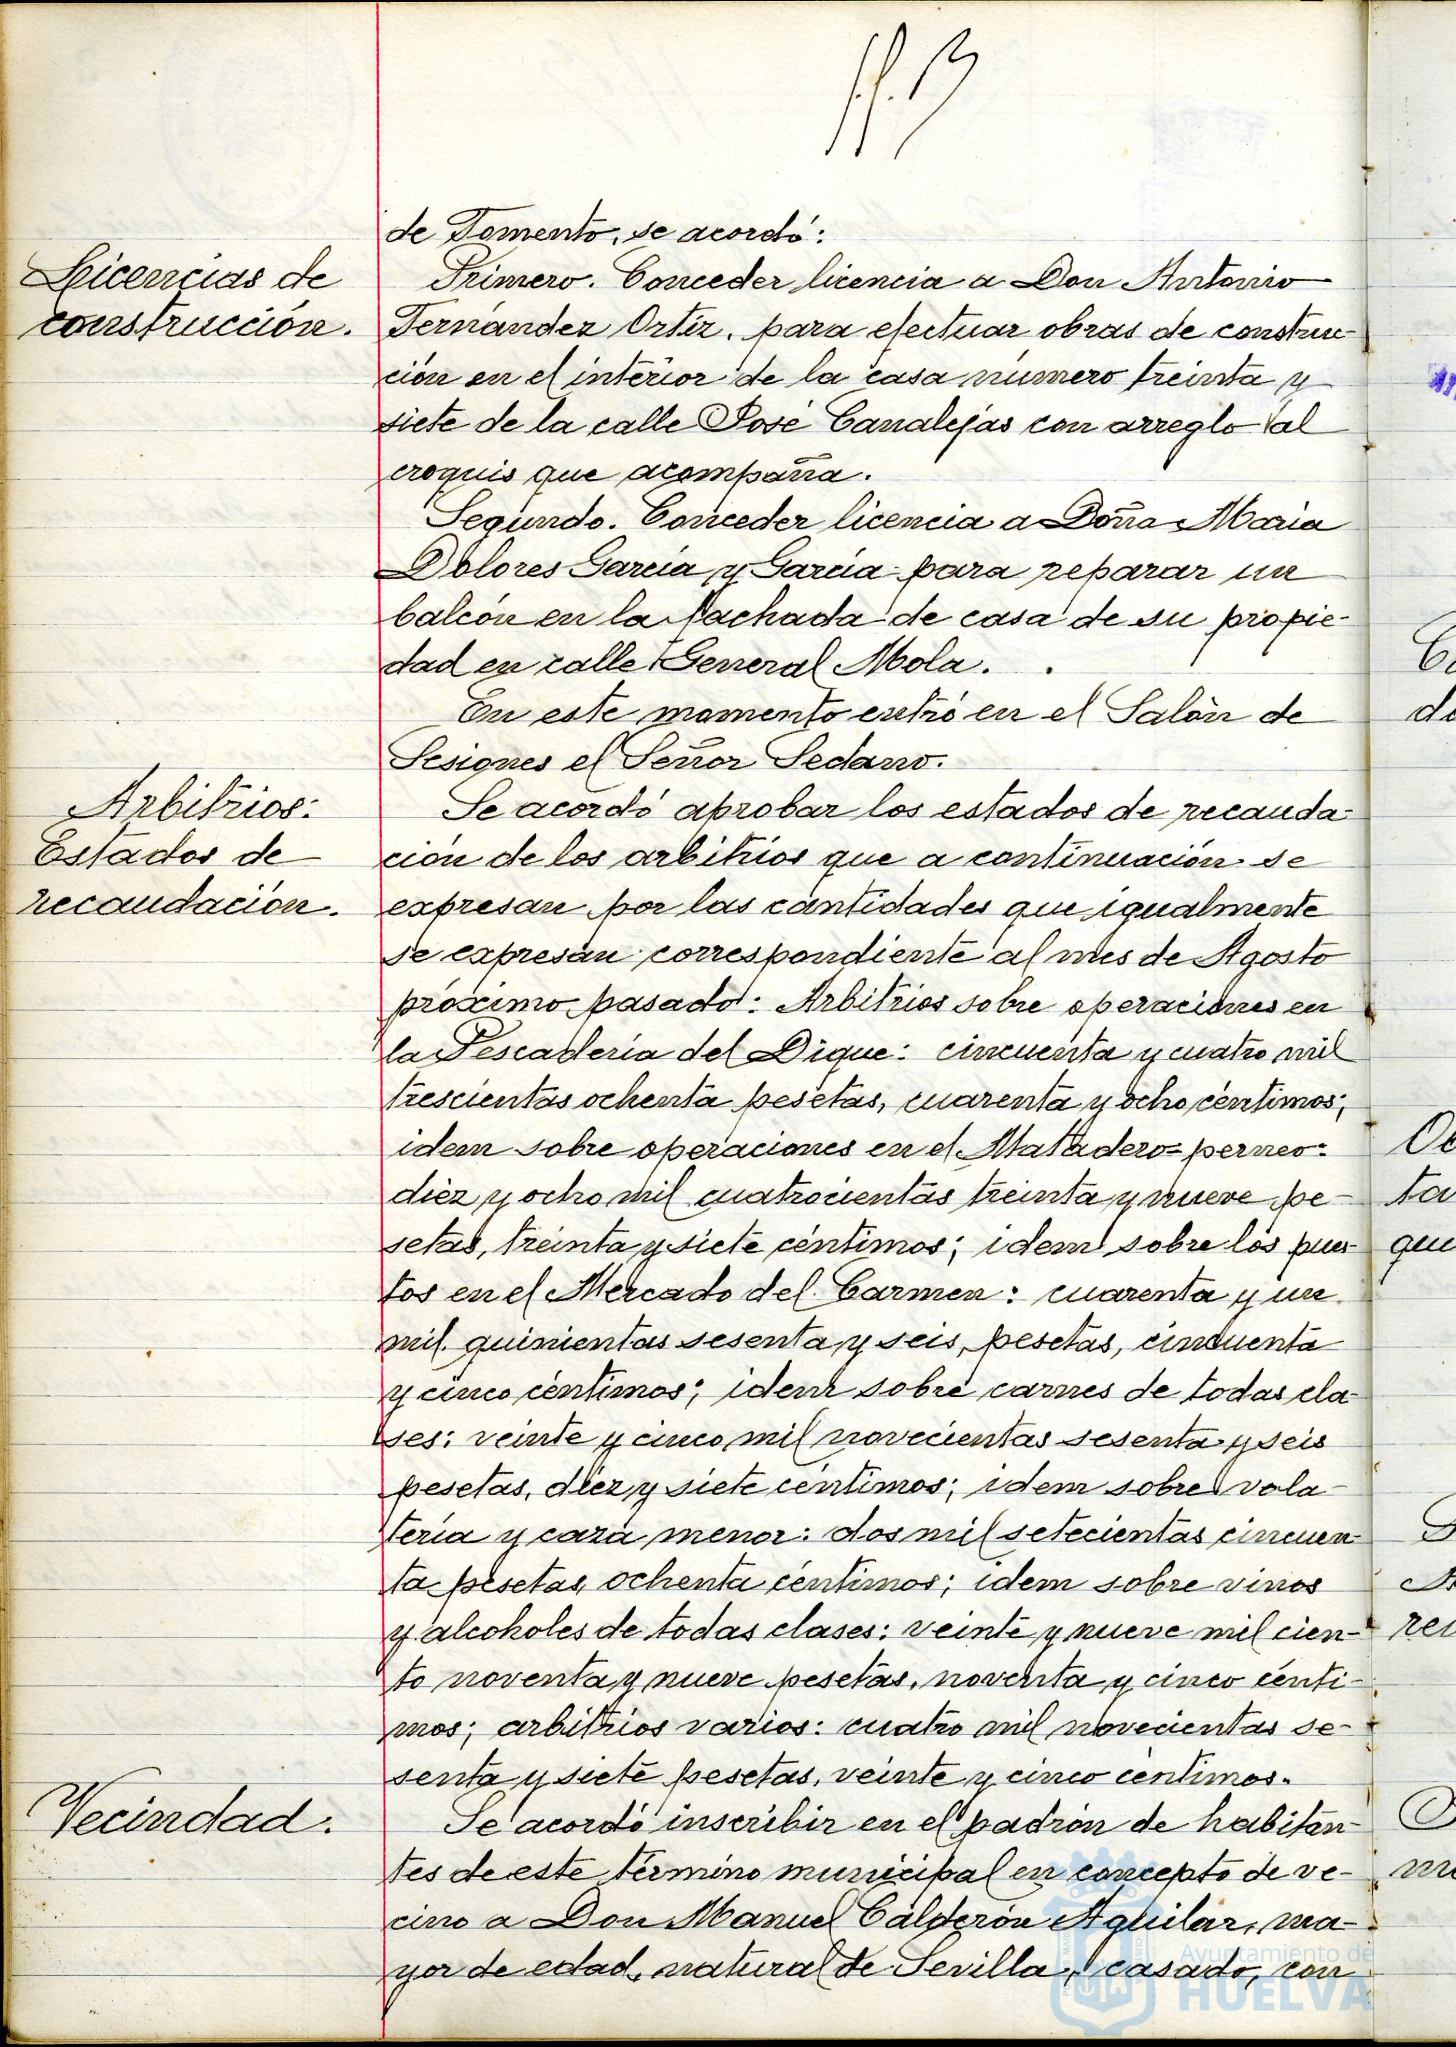 de Fomento, se acordó:
Licencias de
construcción.
Primero. Conceder licencia a Don Antonio
Fernández Ortiz, para efectuar obras de construc-
ción en el interior de la casa número treinta y
siete de la calle José Canalejas con arreglo al
croquis que acompaña.
Segundo. Conceder licencia a Doña Maria
Dolores García y García para reparar un
balcón en la fachada de casa de su propie-
dad en calle General Mola.
En este momento entró en el Salón de
Sesiones el Señor Sedano.
Arbitrios:
Estados de
recaudación.
Se acordó aprobar los estados de recauda-
ción de los arbitrios que a continuación se
expresan por las cantidades que igualmente
se expresan correspondiente al mes de Agosto
próximo pasado: Arbitrios sobre operaciones en
la Pescadería del Dique: cincuenta y cuatro mil
trescientas ochenta pesetas, cuarenta y ocho céntimos;
idem sobre operaciones en el Matadero=perneo:
diez y ocho mil cuatrocientas treinta y nueve pe-
setas, treinta y siete céntimos; idem sobre los pues-
tos en el Mercado del Carmen: cuarenta y un
mil quinientas sesenta y seis pesetas, cincuenta
y cinco céntimos; idem sobre carnes de todas cla-
ses: veinte y cinco mil novecientas sesenta y seis
pesetas, diez y siete céntimos; idem sobre vola-
tería y caza menor: dos mil setecientas cincuen-
ta pesetas, ochenta céntimos; idem sobre vinos
y alcoholes de todas clases: veinte y nueve mil cien-
to noventa y nueve pesetas, noventa y cinco cénti-
mos; arbitrios varios: cuatro mil novecientas se-
senta y siete pesetas, veinte y cinco céntimos.
Vecindad.
Se acordó inscribir en el padrón de habitan-
tes de este término municipal en concepto de ve-
cino a Don Manuel Calderón Aguilar, ma-
yor de edad, natural de Sevilla, casado, con
Ayuntamiento de
HUELVA